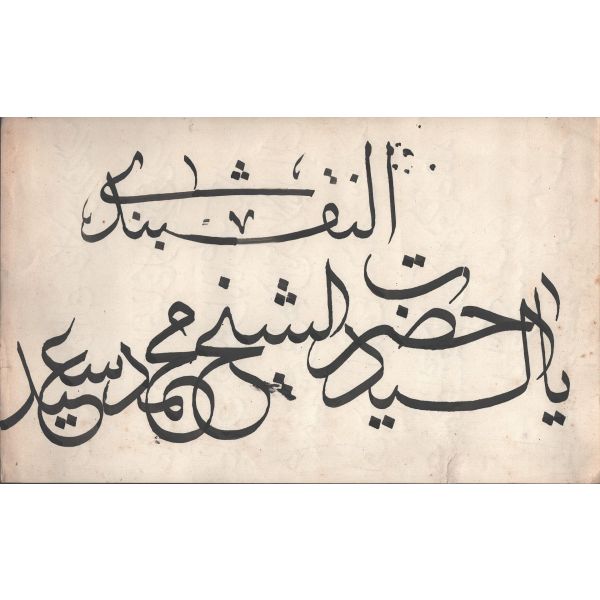 النقشبندى
يا حضرت السيد الشيخ محمد سعيد